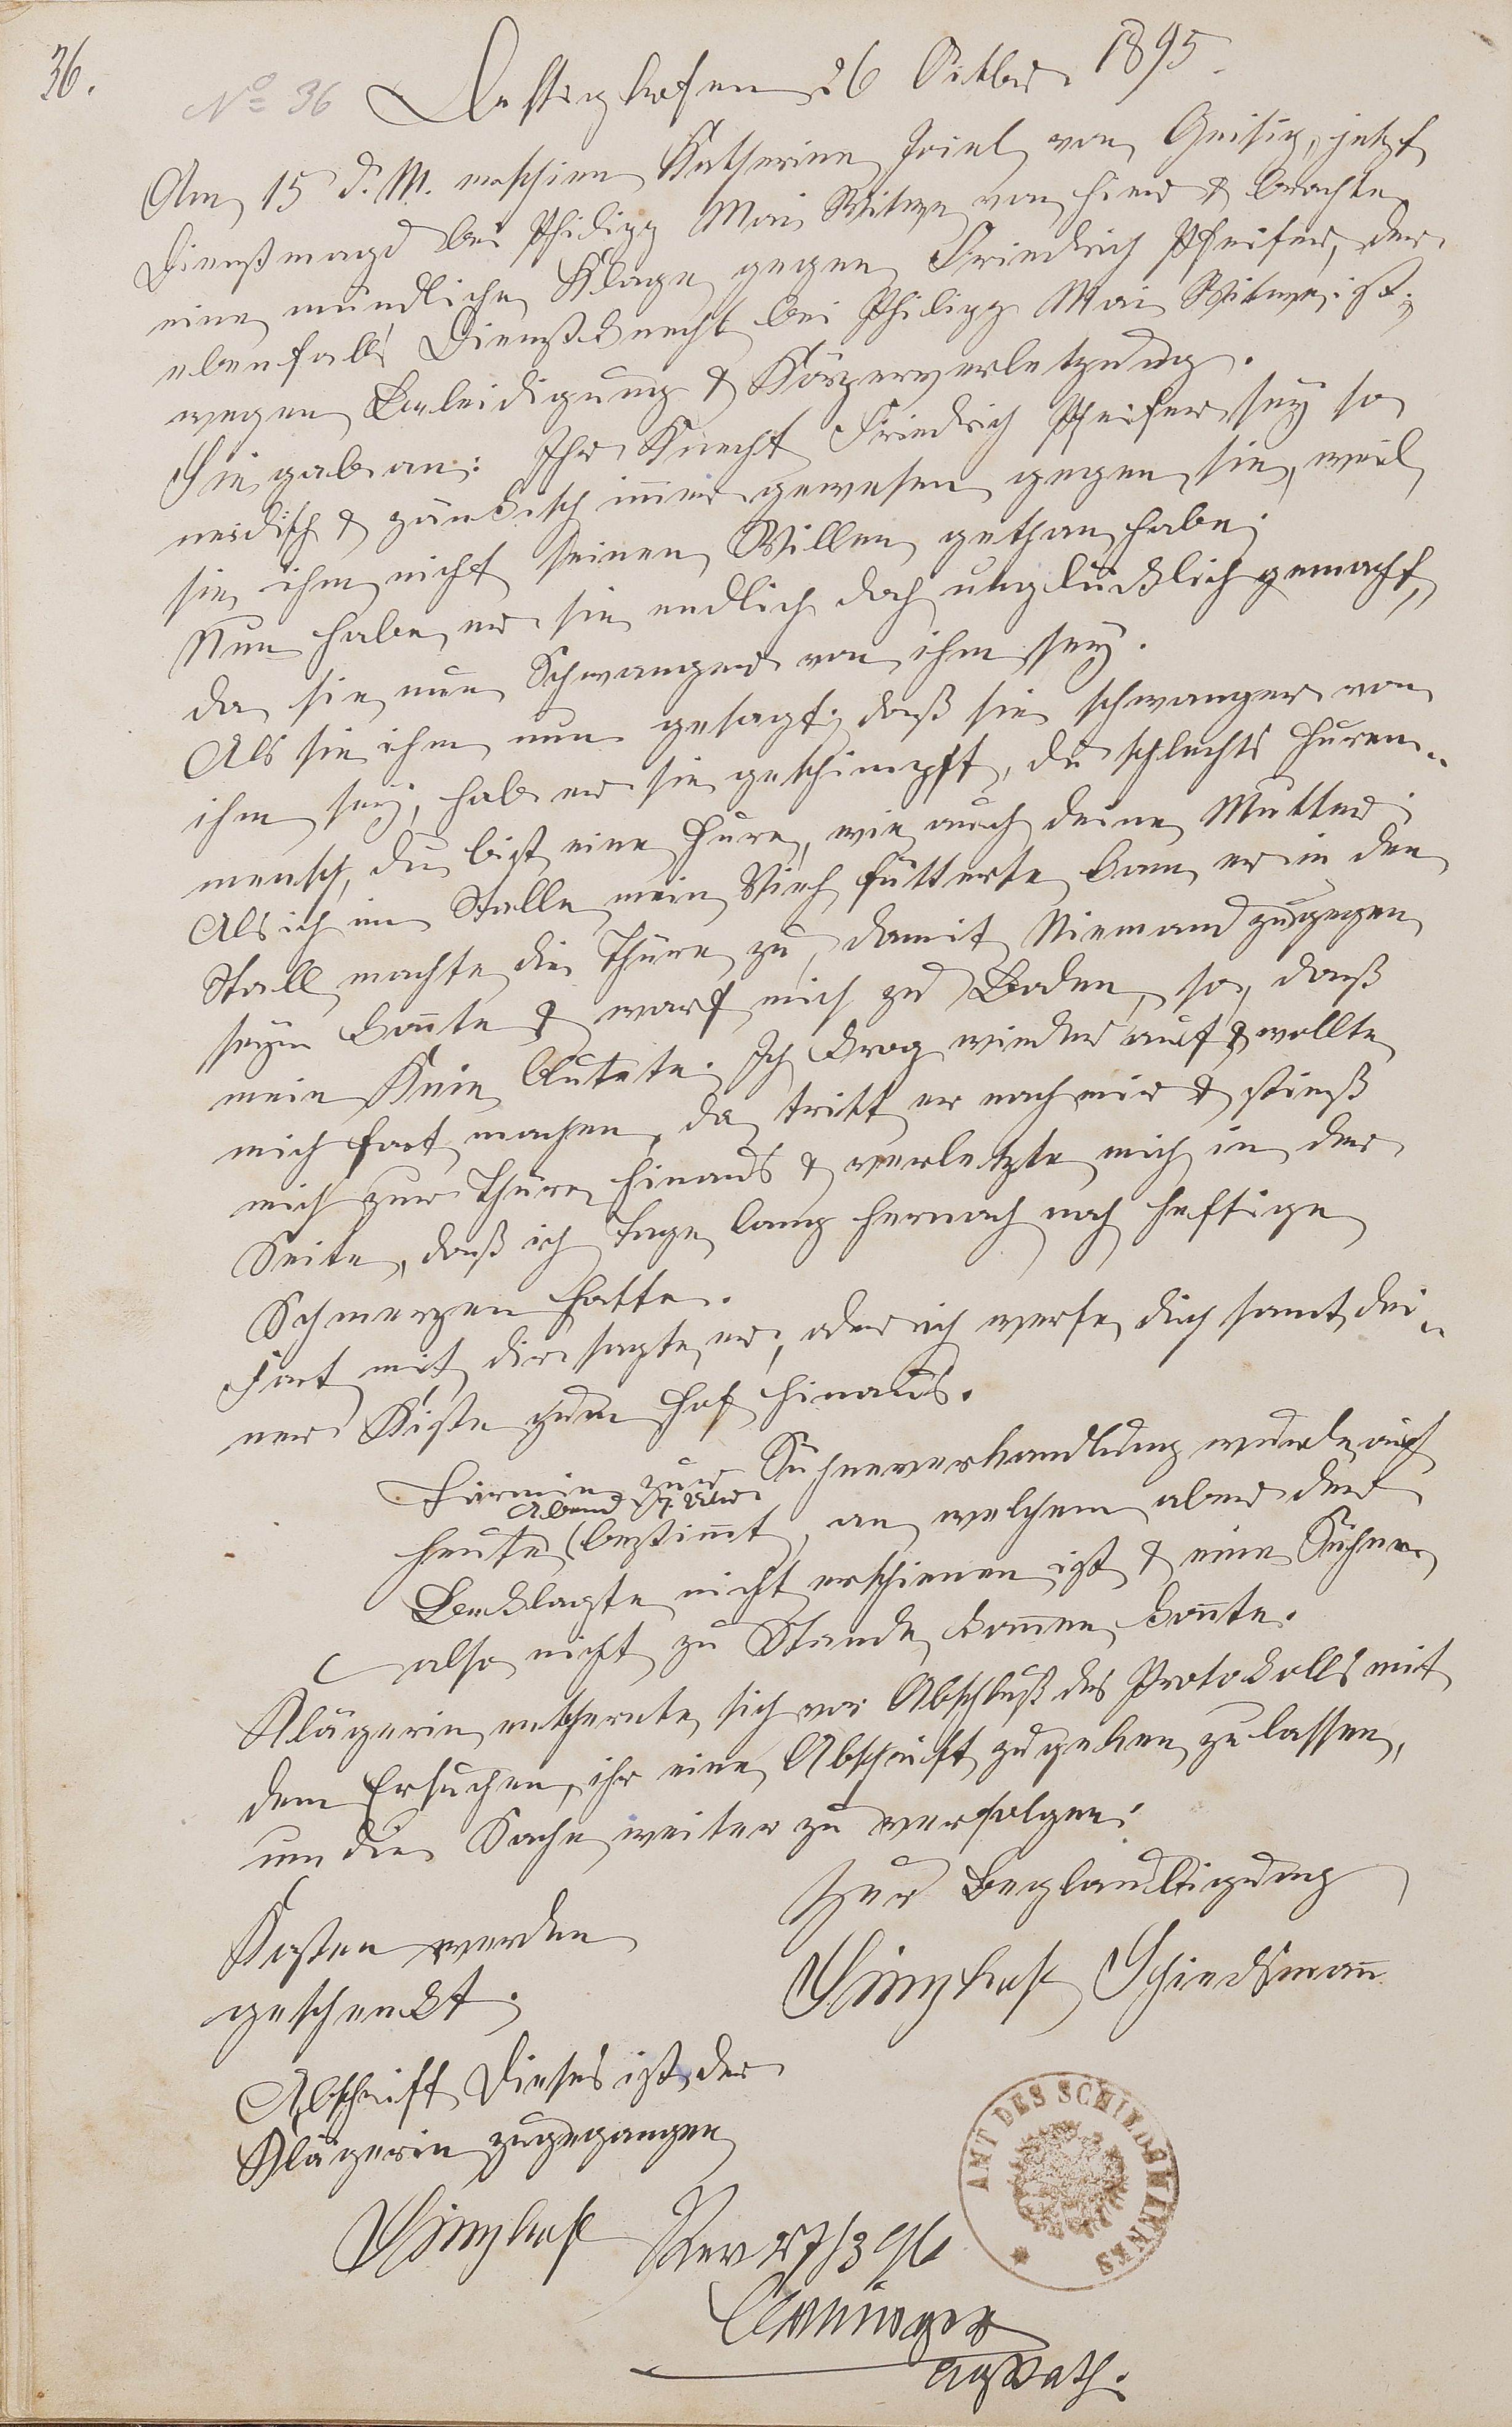 36.
No 36 Dessighofen 26 October 1895.
Am 15 d. M. erschien Katherine Friel von Geisig, jetzt
Dienstmagd bei Philipp Mai Witwe von hier & brachte
eine mündliche Klage gegen Friedrich Pfeifer, der
ebenfalls Dienstknecht bei Philipp Mai Witwe ist,
wegen Beleidigung & Körperverletzung.
Sie gab an: Ihr Knecht Friedrich Pfeifer sey so
neidisch & zänkisch im̄er gewesen gegen sie, weil
sie ihm nicht seinen Willen gethan habe;
Nun habe er sie endlich doch unglücklich gemacht,
da sie nun Schwanger von ihm sey.
Als sie ihm nun gesagt, daß sie schwanger von
ihm sey, hab er sie geschimpft, du schlechts Huren-
mensch, du bist eine Hure, wie auch deine Mutter;
Als ich im Stalle mein Vieh fütterte kam er in den
Stall machte die Thüre zu, damit Niemand zugegen
seyn kon̄te & warf mich zu Boden, so, daß
mein Knie blutete. Ich krog wieder auf & wollte
mich fort machen, da tritt er nach mir & stieß
mich zur Thüre hinaus & verletzte mich in der
Seite, daß ich Tage lang hernach noch heftige
Schmerzen hatte.
Fort mit dir sagte er, oder ich werfe dich samt dei-
ner Kiste zum Hof hinaus.
Termin zur Sühneverhandlung wurde auf
Abend 7 Uhr
heute bestim̄t, an welchem aber der
Beklagte nicht erschienen ist & eine Sühne
also nicht zu Stande kom̄en kon̄te.
Klägerin entfernte sich vor Abschluß des Protokolls mit
dem Ersuchen, ihr eine Abschrift zugehen zu lassen,
um die Sache weiter zu verfolgen.
Zur Beglaubigung
Kosten werden
Schiedsman̄
geschenkt.
Abschrift Dieses ist der
Klägerin zugegangen
AMT DES SCHIEDSMANNES
Rev 27/3 96
AgRath.